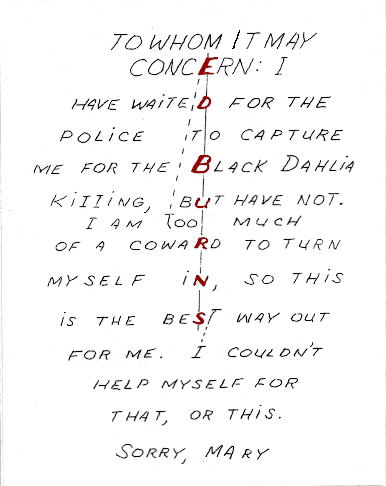 TO WHOM IT MAY
CONCERN: I
HAVE WAITED FOR THE
POLICE TO CAPTURE
ME FOR THE BLACK DAHLIA
KILLING, BUT HAVE NOT.
I AM TOO MUCH
OF A COWARD TO TURN
MYSELF IN, SO THIS
IS THE BEST WAY OUT
FOR ME. I COULDN'T
HELP MYSELF FOR
THAT, OR THIS.
SORRY, MARY